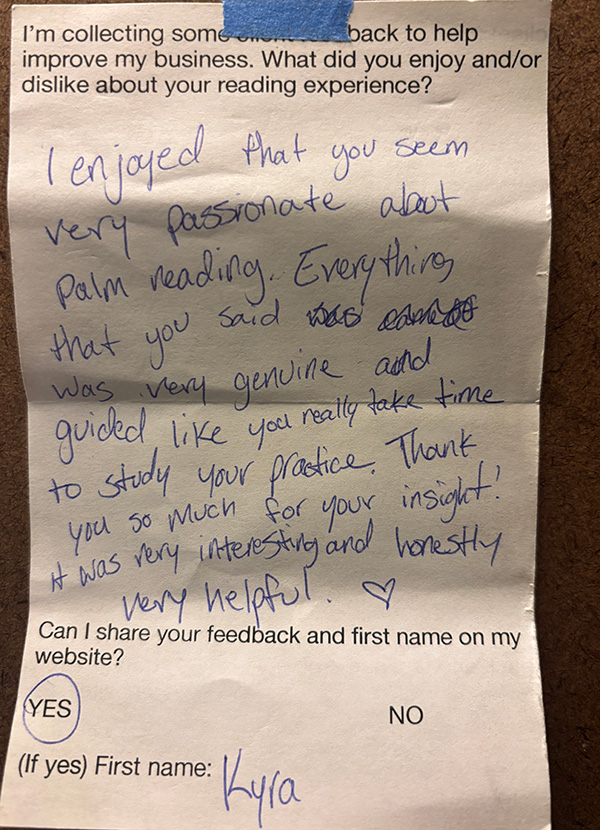 I'm collecting some client feedback to help
improve my business. What did you enjoy and/or
dislike about your reading experience?
I enjoyed that you seem
very passionate about
palm reading. Everything
that you said was
was very genuine and
guided like you really take time
to study your practice. Thank
you so much for your insight!
it was very interesting and honestly
very helpful. ♡
Can I share your feedback and first name on my
website?
YES NO
(If yes) First name: Kyra